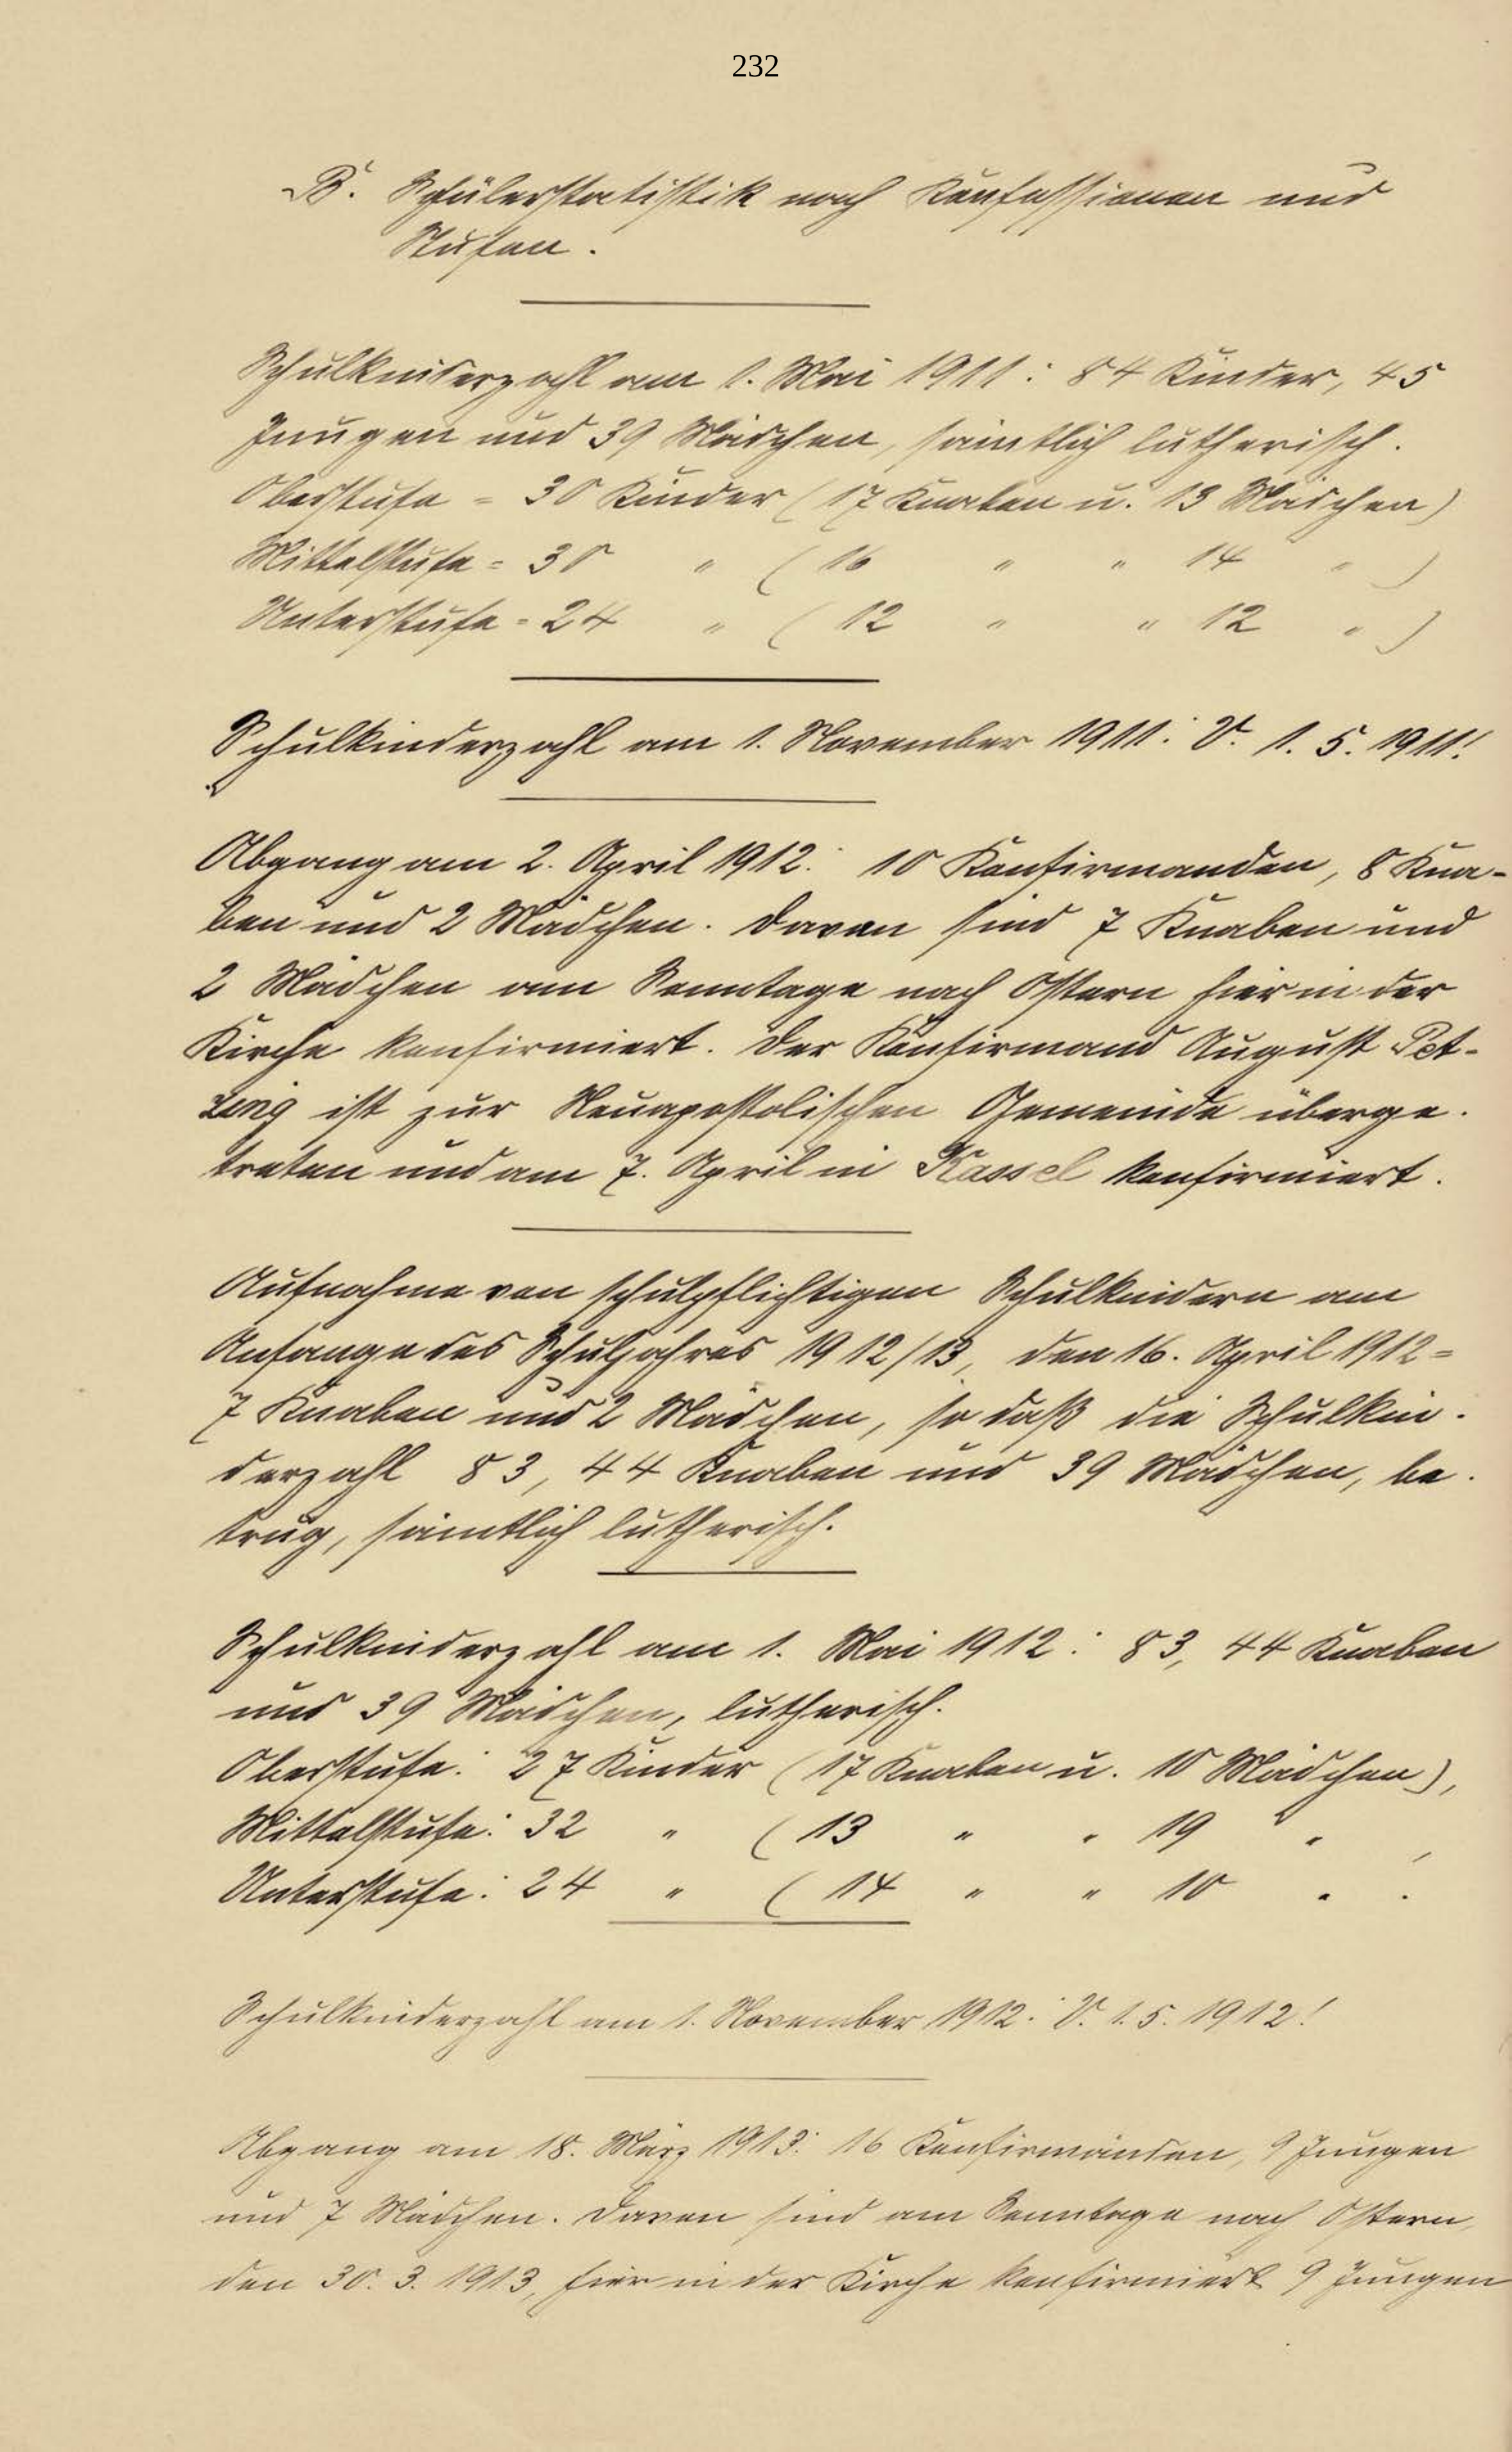 232
B. Schülerstatistik nach Konfessionen und
Stufen.
Schulkinderzahl am 1. Mai 1911: 84 Kinder, 45
Jungen und 39 Mädchen, sämtlich lutherisch.
Oberstufe = 30 Kinder (17 Knaben u. 13 Mädchen)
Mittelstufe = 30 " (16 " " 14 " )
Unterstufe = 24 " (12 " " 12 " )
Schulkinderzahl am 1. November 1911: V. 1. 5. 1911!
Abgang am 2. April 1912: 10 Konfirmanden, 8 Kna-
ben und 2 Mädchen. Davon sind 7 Knaben und
2 Mädchen am Sonntage nach Ostern hier in der
Kirche konfirmiert. Der Konfirmand August Pet-
zing ist zur Neuapostolischen Gemeinde überge-
treten und am 7. April in Kassel konfirmiert.
Aufnahme von schulpflichtigen Schulkindern am
Anfange des Schuljahres 1912/13, den 16. April 1912 =
7 Knaben und 2 Mädchen, so daß die Schulkin-
derzahl 83, 44 Knaben und 39 Mädchen, be-
trug, sämtlich lutherisch.
Schulkinderzahl am 1. Mai 1912: 83, 44 Knaben
und 39 Mädchen, lutherisch.
Oberstufe: 27 Kinder (17 Knaben u. 10 Mädchen),
Mittelstufe: 32 " (13 " " 19 " ,
Unterstufe: 24 " (14 " " 10 " .
Schulkinderzahl am 1. November 1912: V. 1. 5. 1912!
Abgang am 18. März 1913: 16 Konfirmanden, 9 Jungen
und 7 Mädchen. Davon sind am Sonntage nach Ostern,
den 30. 3. 1913, hier in der Kirche konfirmiert 9 Jungen